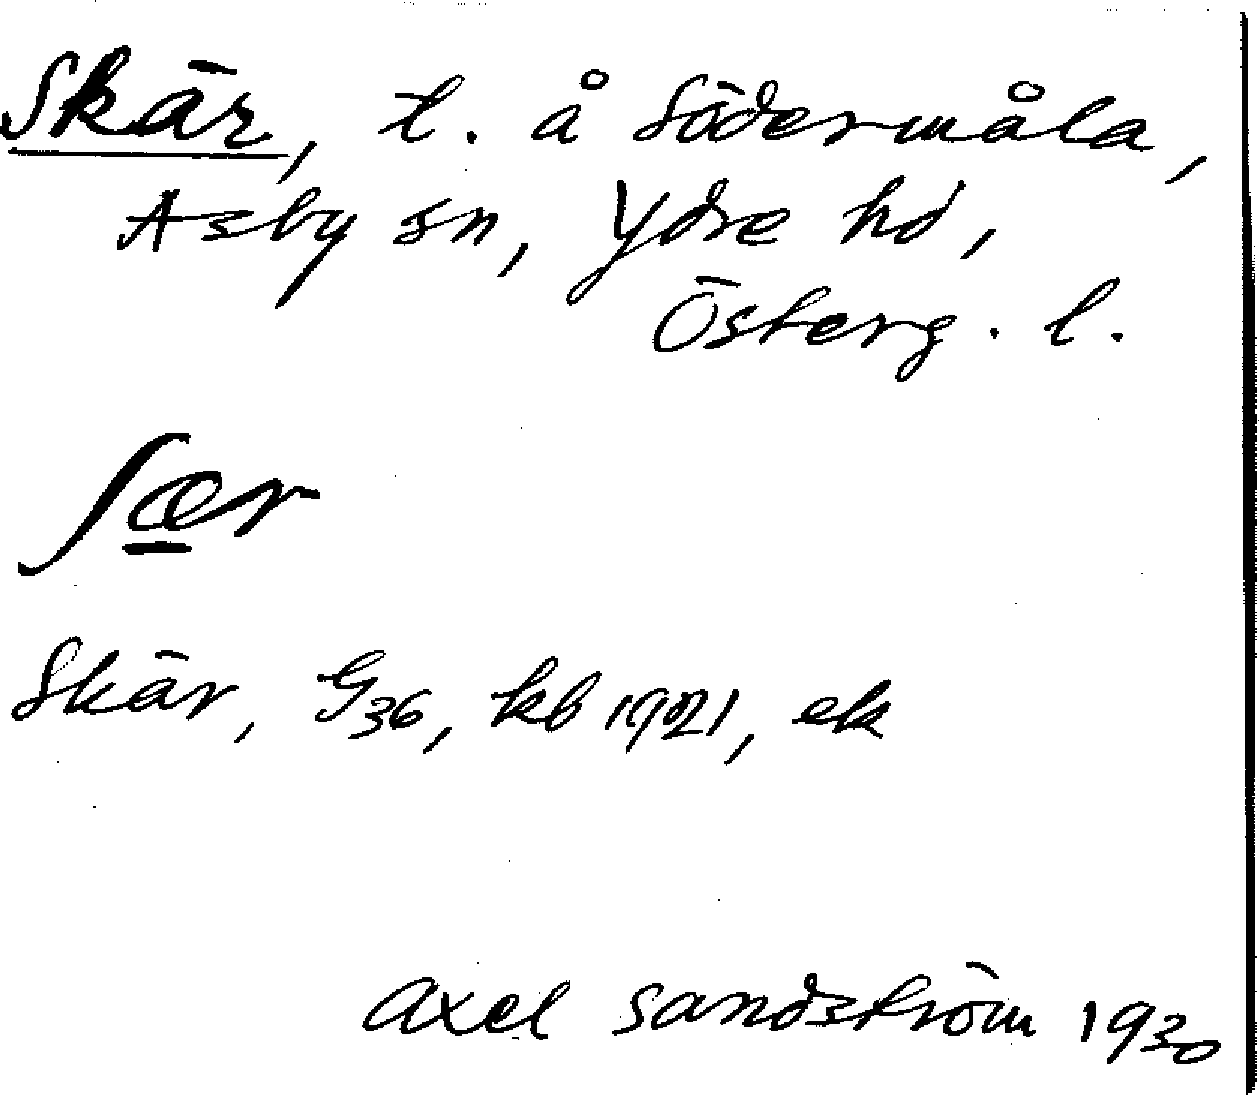 Skär, t. å Södermåla,
Asby sn, Ydre hd,
Österg. l.
ʃær
Skär, G36, kb 1921, ek
Axel Sandström 1930